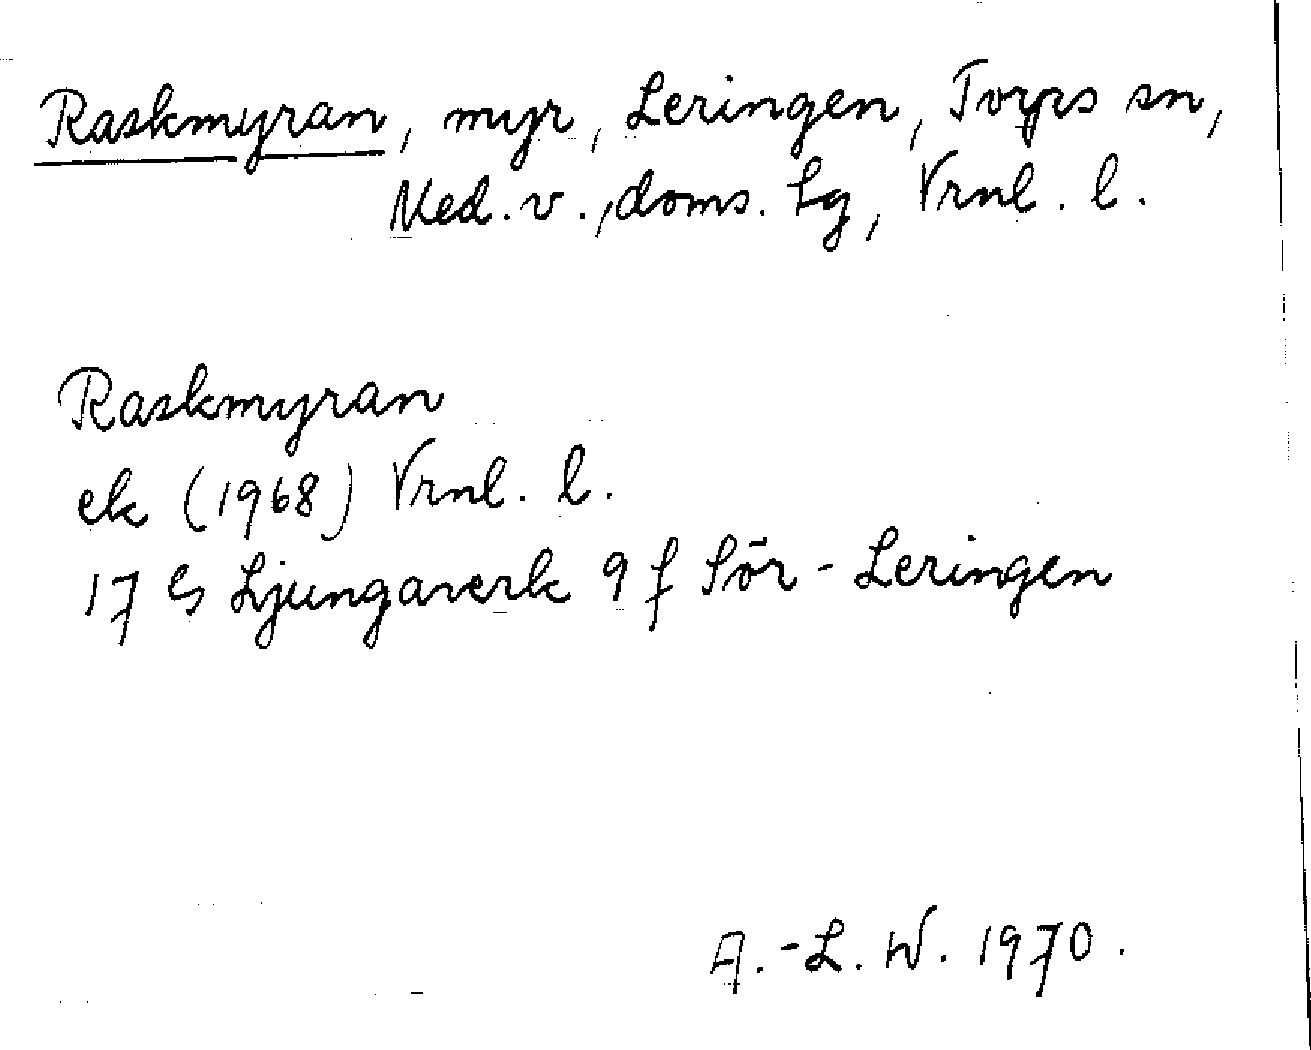 Raskmyran, myr, Leringen, Torps sn,
Med. v., doms. Lg, Vrnl. l.
Raskmyran
ek (1968) Vrnl. l.
17 G Ljungaverk 9 f Sör-Leringen
A.-L. W. 1970.